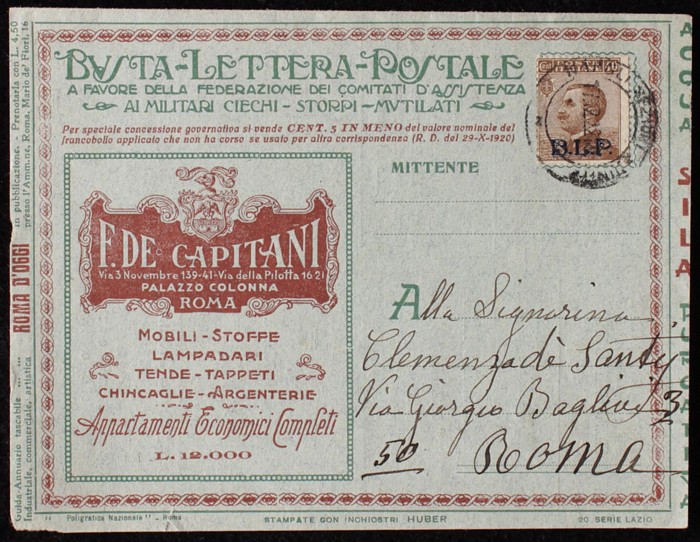 BUSTA-LETTERA-POSTALE
A FAVORE DELLA FEDERAZIONE DEI COMITATI D'ASSISTENZA
AI MILITARI CIECHI - STORPI - MUTILATI
Per speciale concessione governativa si vende CENT. 5 IN MENO del valore nominale del
francobollo applicato che non ha corso se usato per altra corrispondenza (R. D. del 29-X-1920)
B.L.P.
MITTENTE
F. DE CAPITANI
Via 3 Novembre 139-41-Via della Pilotta 16 21
PALAZZO COLONNA
ROMA
MOBILI - STOFFE
LAMPADARI
TENDE - TAPPETI
CHINCAGLIE - ARGENTERIE
Appartamenti Economici Completi
L. 12.000
Alla Signorina
Clemenza de Santy
Via Giorgio Baglivi 3
50 Roma
Poligrafica Nazionale - Roma
STAMPATE CON INCHIOSTRI HUBER
20 SERIE LAZIO
Guida-Annuario tascabile
ROMA D'OGGI
in pubblicazione. - Prenotarla con L. 4,50
Industriale, commerciale, artistica
presso l'Amm.ne, Roma, Mario de' Fiori, 16
ACQUA SILA